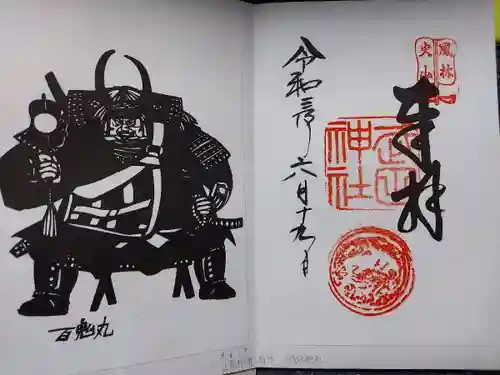 風林
火山
奉拝
武田
神社
令和三年
六月十九日
百鬼丸